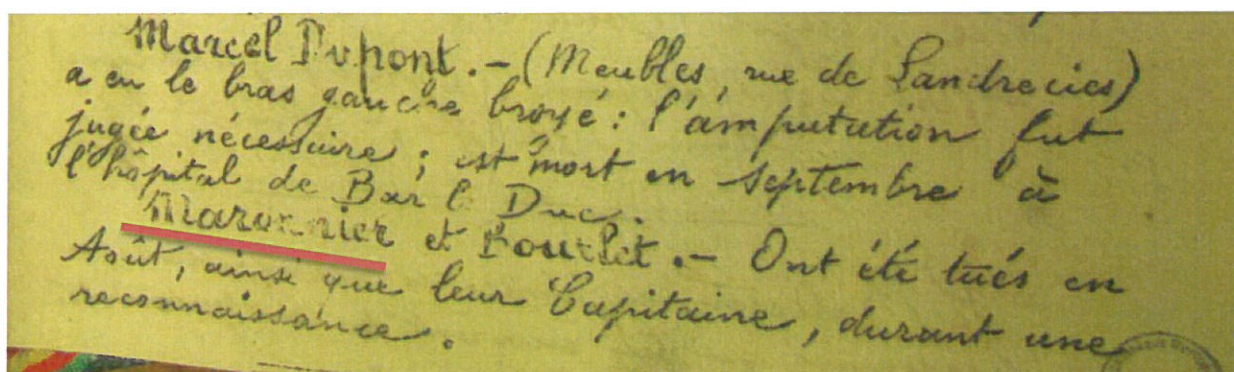 Marcel Dupont. - (Meubles, rue de Landrecies)
a eu le bras gauche broyé : l'amputation fut
jugée nécessaire ; est mort en septembre à
l'hôpital de Bar l Duc.
Maronnier et - Ont été tués en
Août, ainsi que leur Capitaine, durant une
reconnaissance.